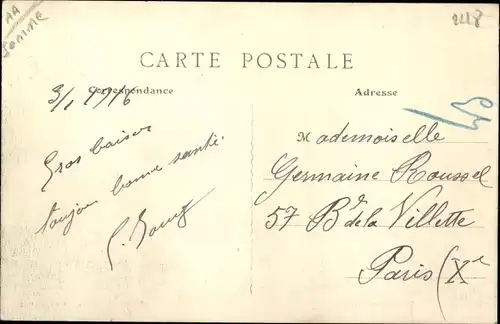 AA
SOMME
2118
CARTE POSTALE
Correspondance
Adresse
3/1 1916
Gros baiser
toujou bonne santé.
Mademoiselle
Germaine Roussel
57 Bd de la Villette
Paris (Xe